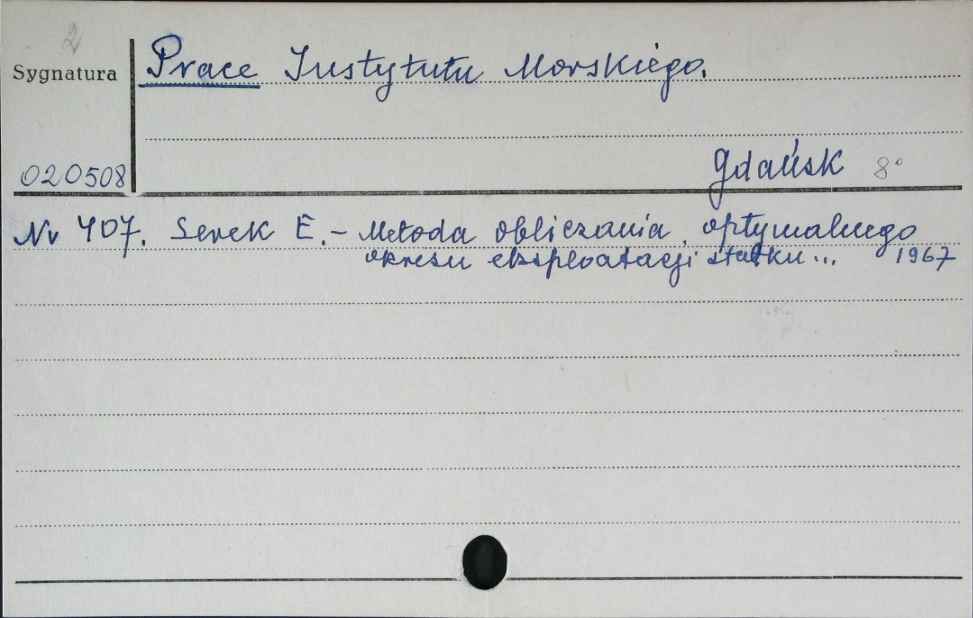 2
Sygnatura
Prace Instytutu Morskiego.
020508
Gdańsk 8°
Nr 407. Serek E. - Metoda obliczania optymalnego
okresu eksploatacji statku... 1967